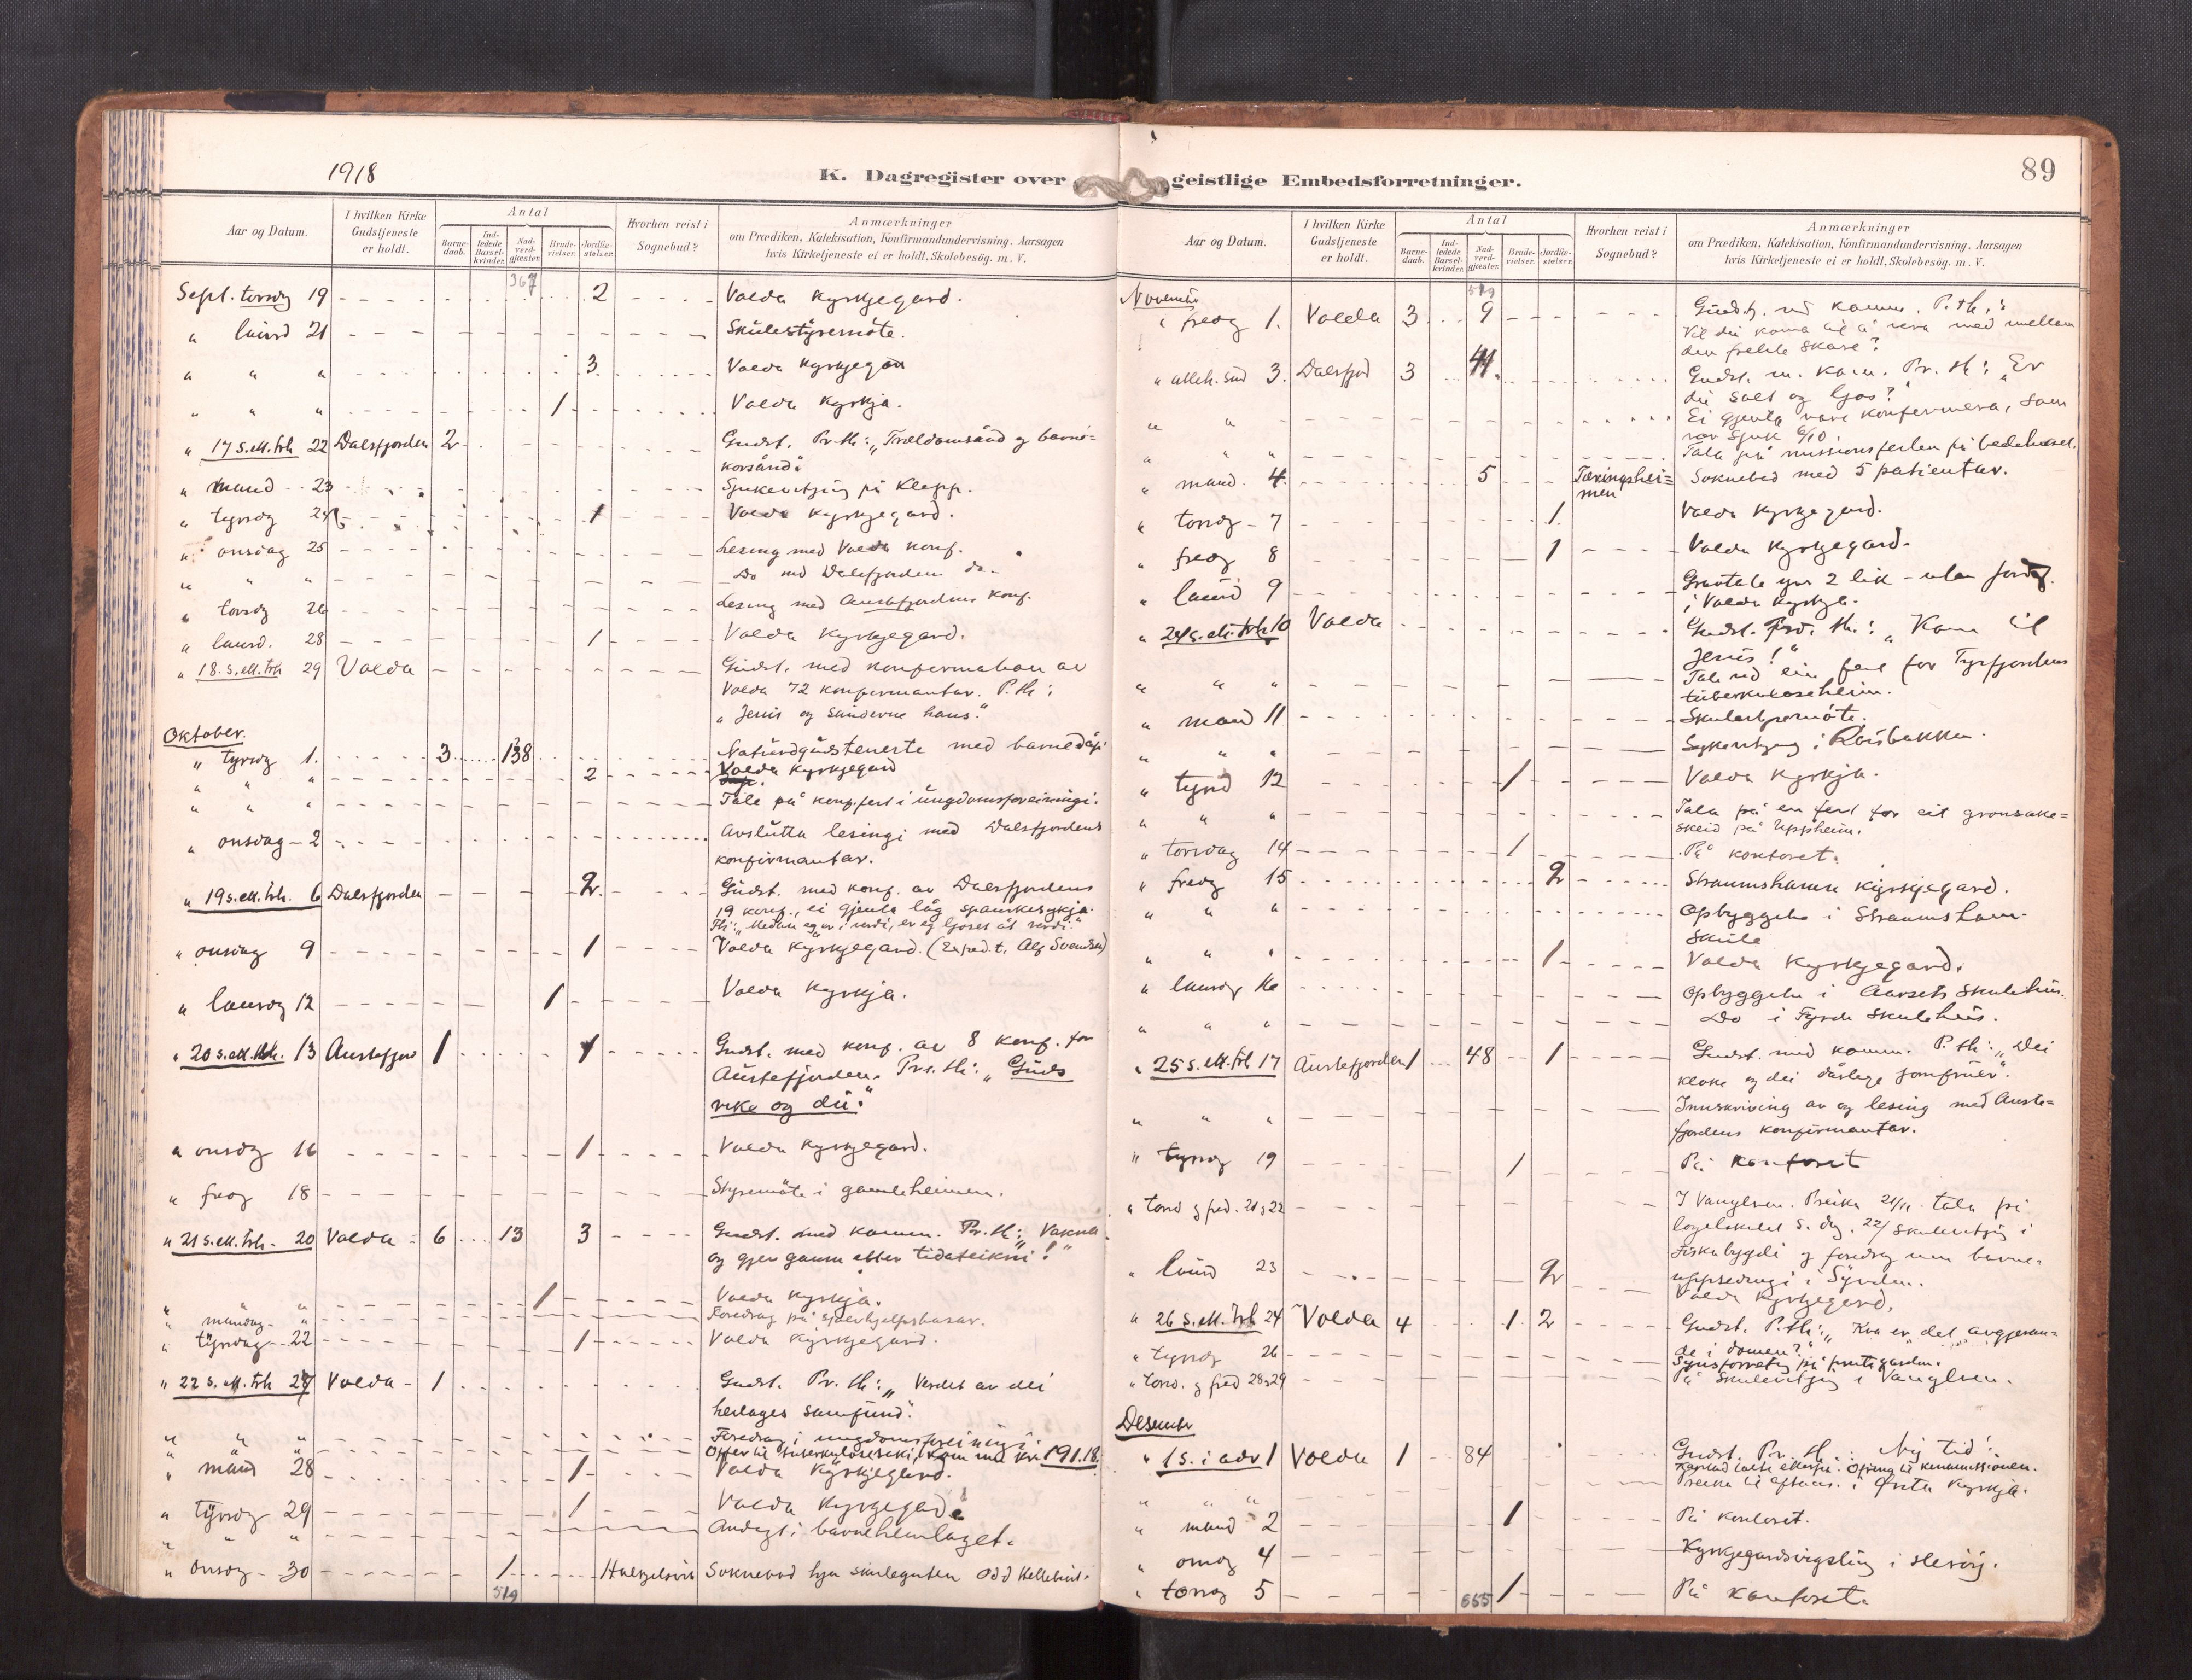 1918
K. Dagregister over
Aar og Datum.
I hvilken Kirke Gudstjeneste er holdt.
Antal
Barnedaab.
Indledede Barselkvinder.
Nadverdgjester.
Brudevielser.
Jordfæstelser.
Hvorhen reist i Sognebud?
Anmærkninger
om Prædiken, Katekisation, Konfirmandundervisning. Aarsagen
hvis Kirketjeneste ei er holdt, Skolebesög. m. V.
367
Sept. torsdg 19 2 Volda kyrkjegard.
" laurd 21 Skulestyremöte.
" " " 3 Volda kyrkjegar
" " " 1 Volda kyrkja.
" 17 s. ett. trh 22 Dalsfjorden 2 Gudst. Pr. th: „Trældomsånd og barne=
korsånd"
" mand 23 på Klepp.
" tyrsdg 24 1 Volda kyrkjegard.
" onsdag 25 Lesing med Volda konf.
" " " Do med Dalsfjordens do-
" torsdg 26 Lesing med Austefjordens konf.
" laurd. 28 1 Volda kyrkjegard.
" 18. s. ett. trh 29 Volda Gudst. med konfirmation av
Volda 72 konfirmantar. P. th:
„Jesus og sauderne hans."
Oktober.
" tyrsdg 1. 3 138 med barnedåp
" " " 2 Volda kyrkjegard
" " " Tale på konf. fest i ungdomsforeiningi.
" onsdag 2 Avslutta lesingi med Dalsfjordens
konfirmantar.
" 19 s. ett. trh. 6 Dalsfjorden 2 Gudst. med konf. av Dalsfjordens
19 konf., ei gjenta låg spanskesykja.
Th: „Medan eg er i verdi, er eg ljoset åt verdi."
" onsdag 9 1 Volda kyrkjegard. (Exped. t. Alf Svendsen)
" laurdg 12 1 Volda kyrkja.
" 20 s. ett. trh. 13 Austefjord 1 1 Gudst. med konf. av 8 konf. for
Austefjorden. Pr. th: „Guds
rike og du."
" onsdg 16 1 Volda kyrkjegard.
" fredg 18 Styremöte i gamleheimen.
" 21 s. ett. trh. 20 Volda 6 13 3 Gudst. med komm. Pr. th: „Vakna
og gjev gaum etter tidsteikni!"
" " " 1 Volda kyrkja.
" måndag " Foredrag på
" tyrsdag 22 1 Volda kyrkjegard.
" 22 s. ett. trh 27 Volda 1 Gudst. Pr. th: „Verdet av dei
heilages samfund".
" " " Foredrag i ungdomsforeiningi.
" " " Offer til tuberkulosesaki, kom inn kr. 191.18.
" mand 28 1 Volda kyrkjegard.
" tyrsdg 29 1 Volda kyrkjegard.
" " " Andagt i barneheimlaget.
" onsdg 30 1 Soknebod hja skuleguten Odd
519
geistlige Embedsforretninger.
89
Aar og Datum.
I hvilken Kirke Gudstjeneste er holdt.
Antal
Barnedaab.
Indledede Barselkvinder.
Nadverdgjester.
Brudevielser.
Jordfæstelser.
Hvorhen reist i Sognebud?
Anmærkninger
om Prædiken, Katekisation, Konfirmandundervisning. Aarsagen
hvis Kirketjeneste ei er holdt, Skolebesög. m. V.
519
November
" fredg 1. Volda 3 9 Gudst. m komm. P. th:
Vil du koma til å vera med mellom
den frelste skare?
" alleh. sund 3. Dalsfjord 3 41 Gudst. m. kom. Pr. th: „Er
du salt og ljos?"
" " Ei gjenta konfirmera, som
var sjuk 6/10.
" " " Tala på missionsfesten på bedehuset.
" mand. 4. 5 Tæringshei=
men Soknebod med 5 patientar.
" torsdg 7 1 Volda kyrkjegard.
" fredg 8 1 Volda kyrkjegard.
" laurd 9 Gravtale yver 2 lik - utan
i Volda kyrkje.
" 24 s. ett. trh 10 Volda Gudst. Prd. th: „Kom til
Jesus!"
" " " Tale ved ein fest for
tuberkuloseheim.
" mand 11 Skulestyremöte.
" " " i
" tyrsd 12 1 Volda kyrkja.
" " " Tala på en fest for eit grönsaks=
skeid på Uppheim.
" torsdag 14 1 På kontoret.
" fredg 15 2 Straumshamn kyrkjegard.
" " " Opbyggelse i Straumsham-
skule
" " " 1 Volda kyrkjegard.
" laurdg 16 Opbyggelse i Aarsets skulehus.
" " " Do i skulehus.
" 25 s. ett. trh 17 Austefjorden 1 48 1 Gudst. med komm. P. th: „Dei
kloke og dei dårlege jomfruer".
" " " Innskriving av og lesing med Auste=
fjordens konfirmantar.
" tyrsdg 19 1 På kontoret
" torsd og fred. 21 og 22 I Vanylven. Preika 21/11 - tala på
s. dg. 22/ i
Fiskabygdi og foredrag um barne-
uppsedingi i Syvden.
" laurd 23 2 Volda kyrkjegard.
" 26 s. ett. trh 24 Volda 4 1 2 Gudst. P. th: „Kva er det avgjeran=
de i domen?"
" tyrsdg 26 på prestegarden.
" torsd. og fred 28 og 29 På i Vanylven.
Desember
" 1 s. i adv 1 Volda 1 84 Gudst. Pr. th: Nij tid!
Ofring til kinamissionen.
" " " Preika til aftens. i Örsta kyrkja.
" mand 2 1 På kontoret.
" onsdg 4 Kyrkjegardsvigsling i
" torsdg 5 1 På kontoret.
655